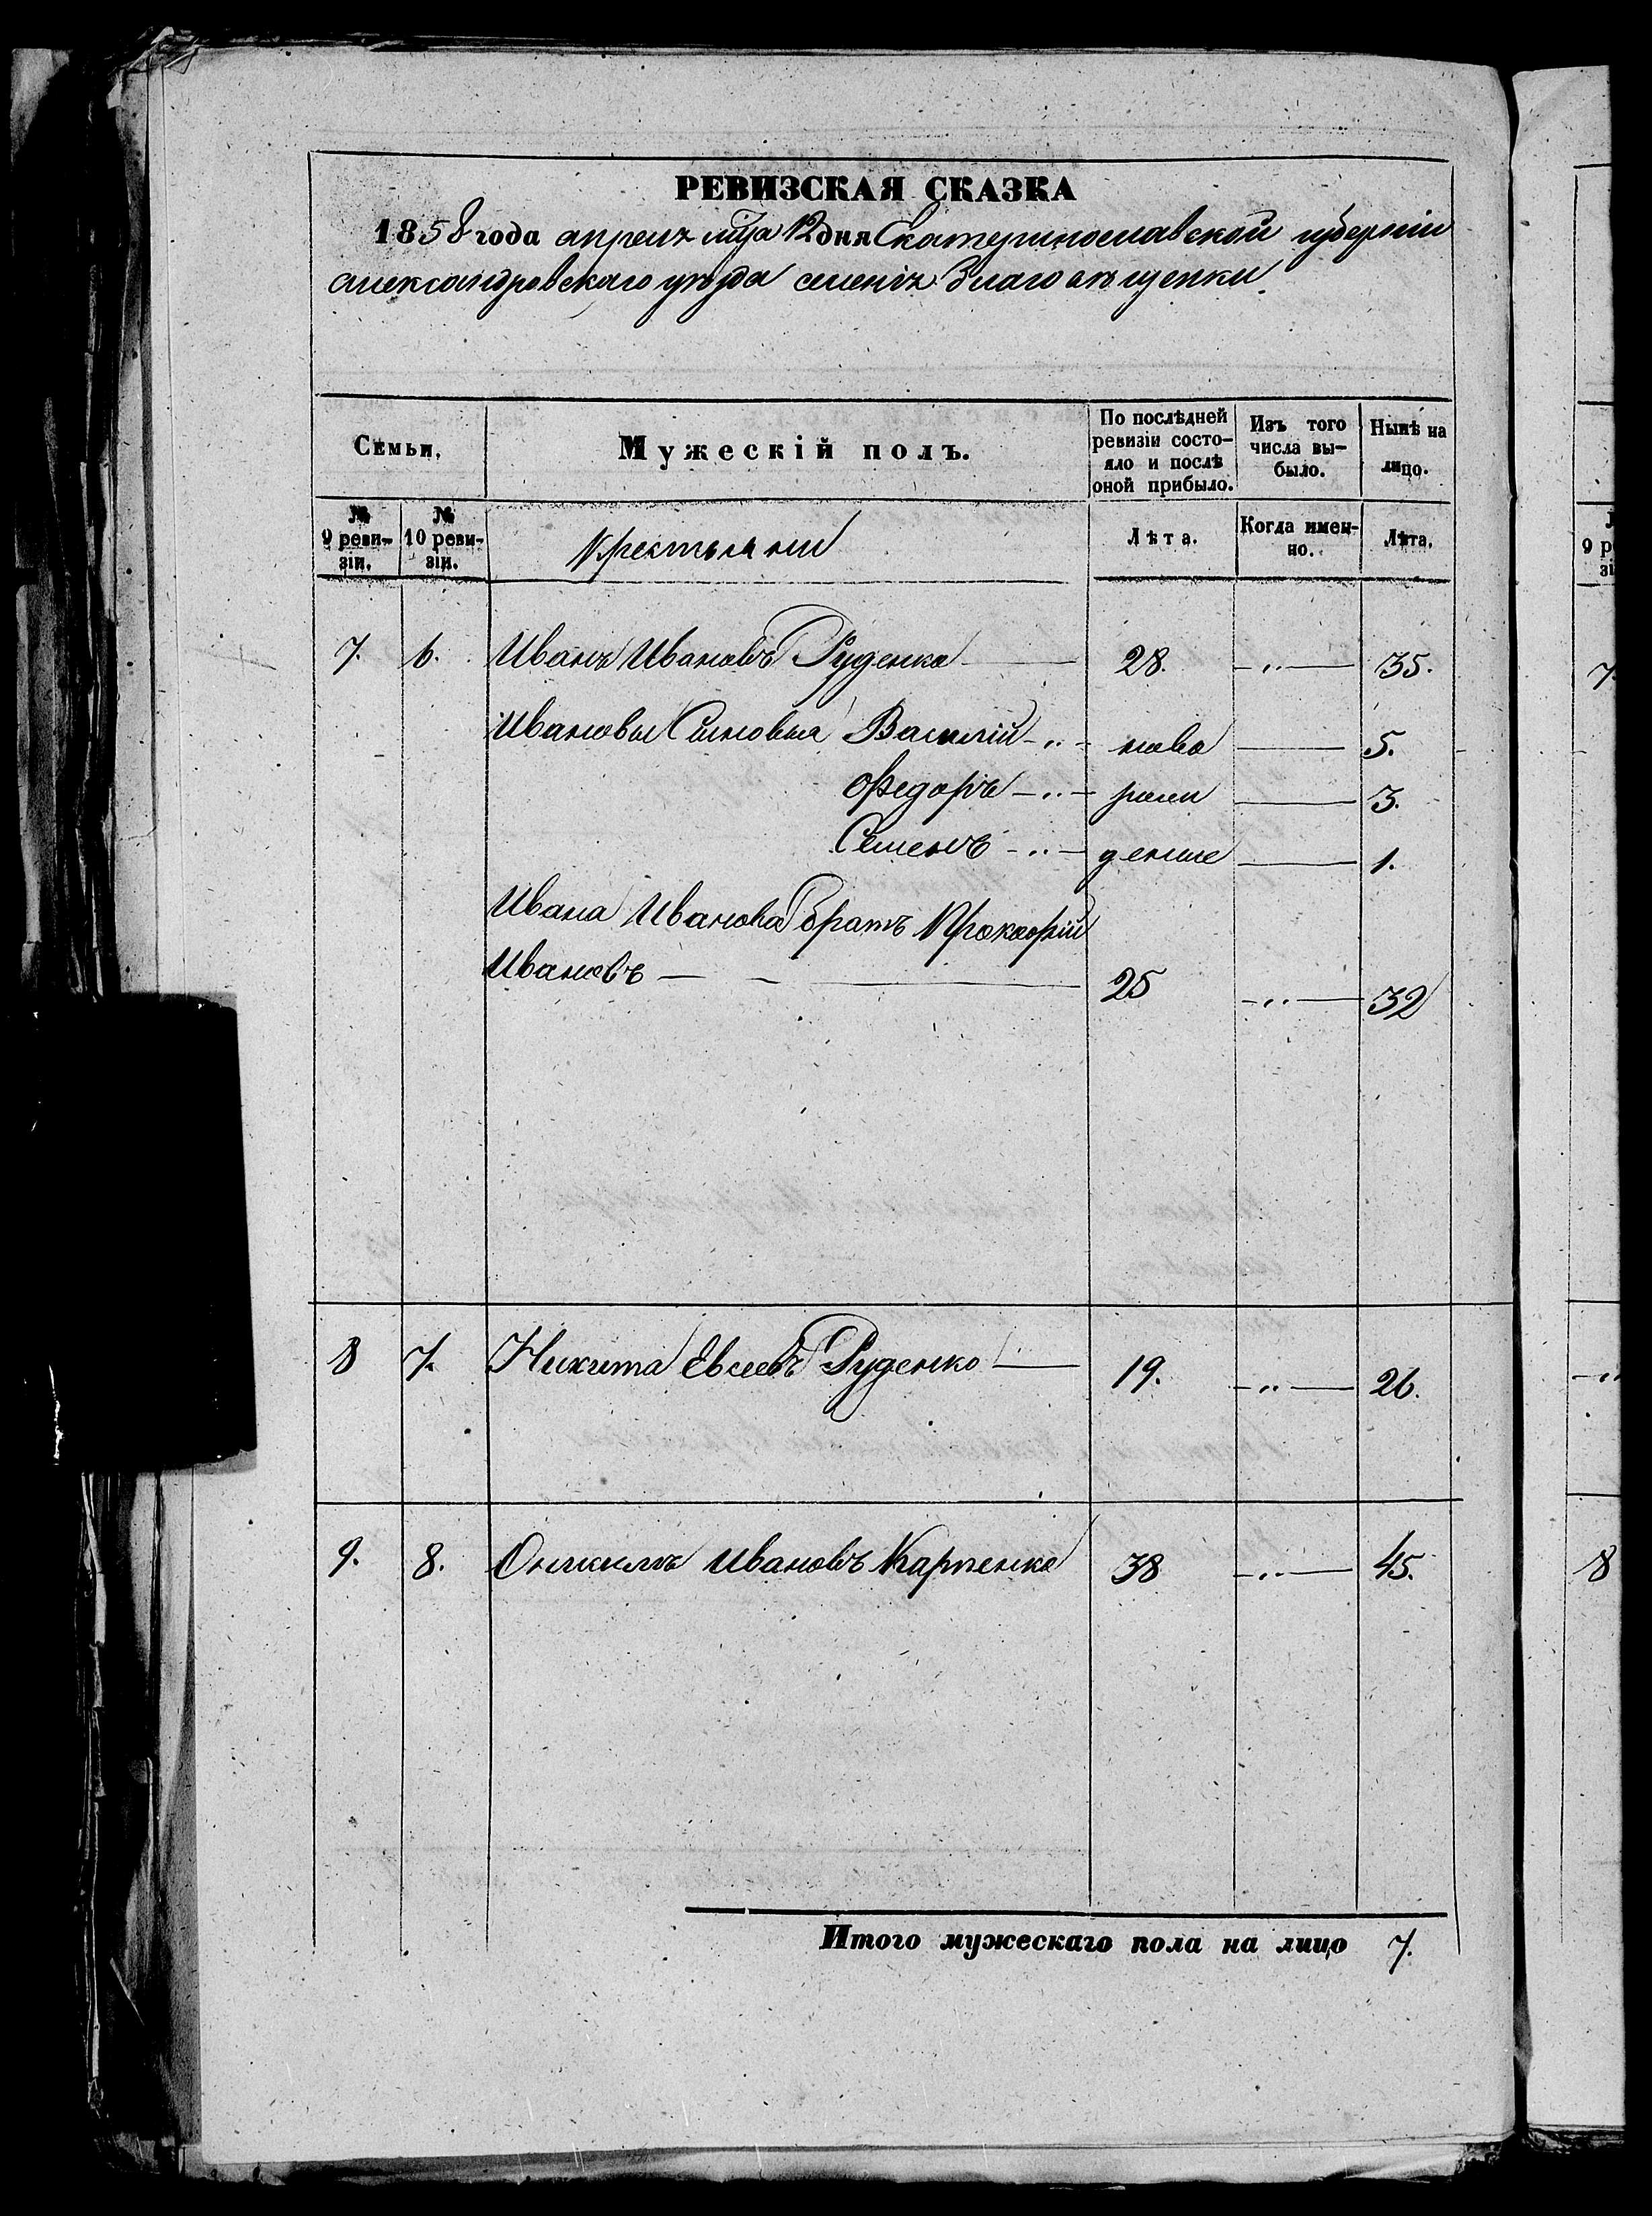 РЕВИЗСКАЯ СКАЗКА
1858 года апреля мца 12 дня Екатеринославской губерніи
александровскаго уѣзда селенія Благовѣщенки
Семьи. Мужескій полъ. По послѣдней ревизіи состо-яло и послѣ оной прибыло. Изъ того числа вы-было. Нынѣ на лицо.
№ 9 реви-зіи. № 10 реви-зіи. Крестьяни Лѣта. Когда имен-но. Лѣта.
7. 6. Иванъ Ивановъ Руденко 28. — „ — 35.
Ивановы Сыновья Василій — „ — ново — 5.
Федоръ — „ — рож — 3.
Семенъ — „ — денные — 1.
Ивана Иванова братъ Прокофій
Ивановъ — — — 25 — „ — 32
8 7. Никита Евсеевъ Руденко — 19. — „ — 26.
9. 8. Ивановъ Карпенко 38 — „ — 45.
Итого мужескаго пола на лицо 7.
9 ре
зі
7.
8